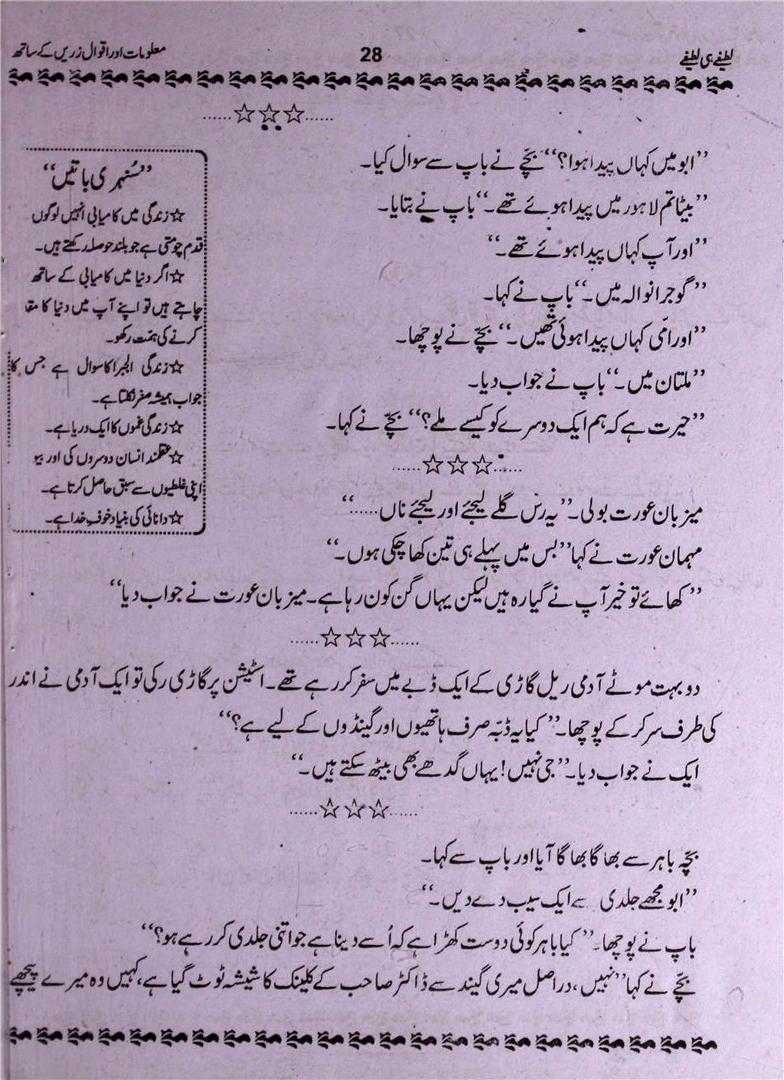 لطیفے ہی لطیفے
28
معلومات اور اقوال زریں کے ساتھ
......☆☆☆......
’’ابو میں کہاں پیدا ہوا؟‘‘ بچّے نے باپ سے سوال کیا۔
’’بیٹا تم لاہور میں پیدا ہوئے تھے۔‘‘ باپ نے بتایا۔
’’اور آپ کہاں پیدا ہوئے تھے۔‘‘
’’گوجرانوالہ میں۔‘‘ باپ نے کہا۔
’’اور امّی کہاں پیدا ہوئی تھیں۔‘‘ بچّے نے پوچھا۔
’’ملتان میں۔‘‘ باپ نے جواب دیا۔
’’حیرت ہے کہ ہم ایک دوسرے کو کیسے ملے؟‘‘ بچّے نے کہا۔
’’سُنہری باتیں‘‘
☆زندگی میں کامیابی انہیں لوگوں
قدم چومتی ہے جو بلند حوصلہ رکھتے ہیں۔
☆اگر دنیا میں کامیابی کے ساتھ
چاہتے ہیں تو اپنے آپ میں دنیا کا مقا
کرنے کی ہمت رکھو۔
☆زندگی الجبرا کا سوال ہے جس کا
جواب ہمیشہ صفر نکلتا ہے۔
☆زندگی غموں کا ایک دریا ہے۔
☆عقلمند انسان دوسروں کی اور بیو
اپنی غلطیوں سے سبق حاصل کرتا ہے۔
☆دانائی کی بنیاد خوفِ خدا ہے۔
......☆☆☆......
میزبان عورت بولی۔’’یہ رس گلے لیجئے اور لیجئے ناں......‘‘
مہمان عورت نے کہا’’بس میں پہلے ہی تین کھا چکی ہوں۔‘‘
’’کھائے تو خیر آپ نے گیارہ ہیں لیکن یہاں گن کون رہا ہے۔میزبان عورت نے جواب دیا‘‘
......☆☆☆......
دو بہت موٹے آدمی ریل گاڑی کے ایک ڈبے میں سفر کر رہے تھے۔اسٹیشن پر گاڑی رکی تو ایک آدمی نے اندر
کی طرف سر کر کے پوچھا۔’’کیا یہ ڈبّہ صرف ہاتھیوں اور گینڈوں کے لیے ہے؟‘‘
ایک نے جواب دیا۔’’جی نہیں! یہاں گدھے بھی بیٹھ سکتے ہیں۔‘‘
......☆☆☆......
بچّہ باہر سے بھاگا بھاگا آیا اور باپ سے کہا۔
’’ابو مجھے جلدی سے ایک سیب دے دیں۔‘‘
باپ نے پوچھا۔’’کیا باہر کوئی دوست کھڑا ہے کہ اُسے دینا ہے جو اتنی جلدی کر رہے ہو؟‘‘
بچّے نے کہا’’نہیں، دراصل میری گیند سے ڈاکٹر صاحب کے کلینک کا شیشہ ٹوٹ گیا ہے، کہیں وہ میرے پیچھے